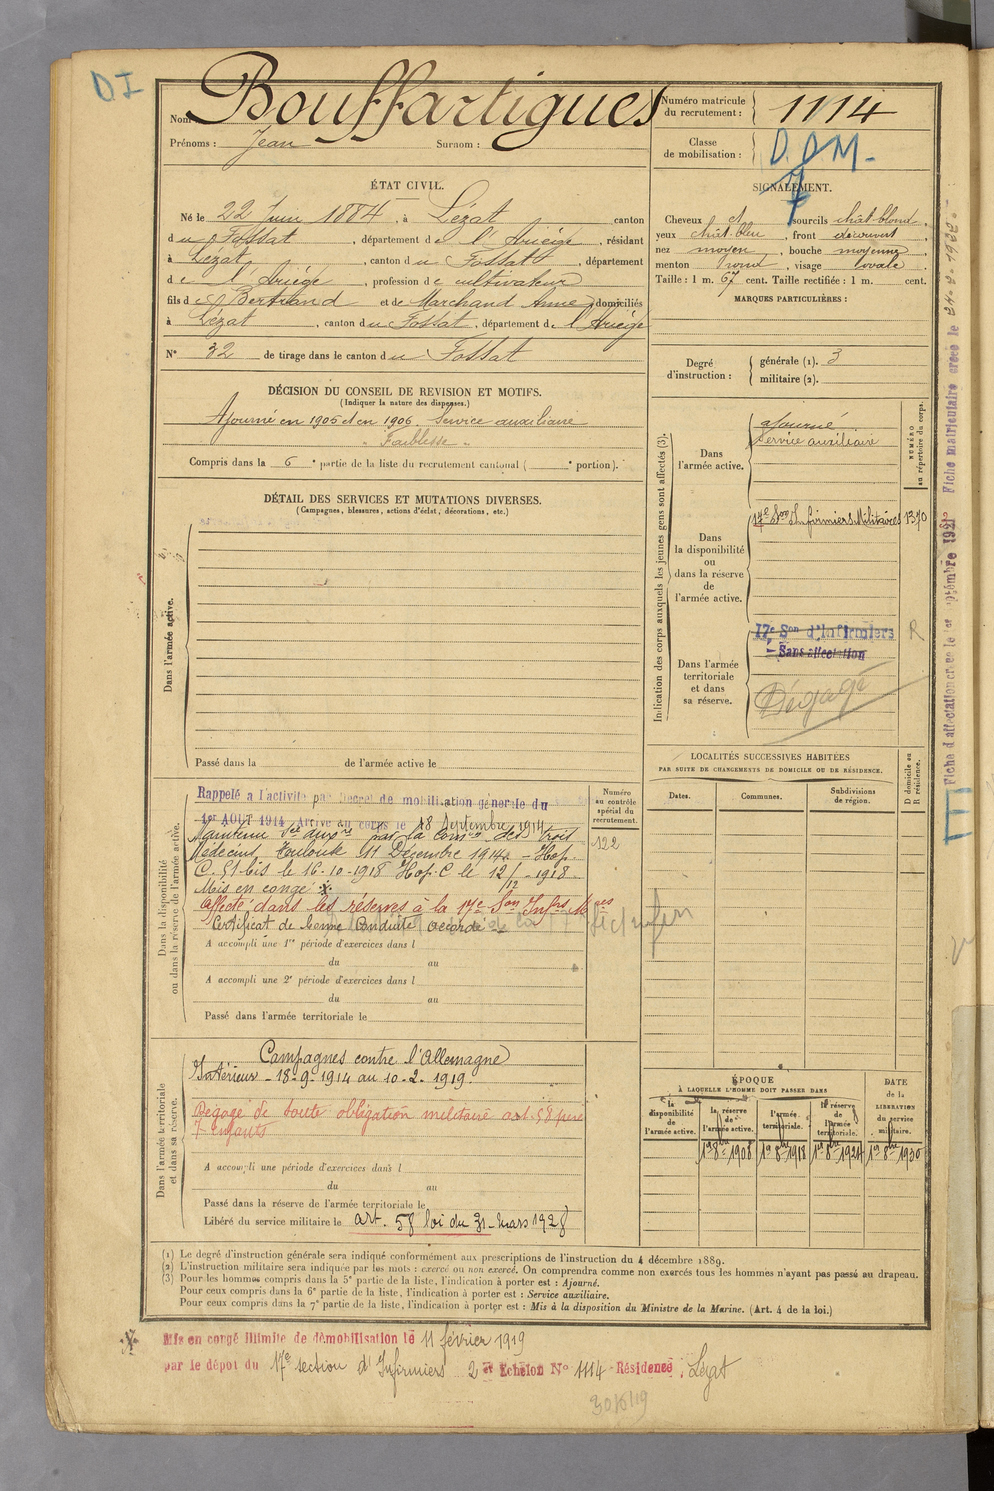 D I
Nom Bouffartigues
Prénoms : Jean Surnom :
Numéro matricule du recrutement : 1114
Classe de mobilisation : D.O.M.
ÉTAT CIVIL.
Né le 22 Juin 1884, à Lézat canton
du Fossat, département de l'Ariège, résidant
à Lézat, canton du Fossat, département
de l'Ariège, profession de cultivateur
fils de Bertrand et de Marchand Anne domiciliés
à Lézat, canton du Fossat, département de l'Ariège
N° 32 de tirage dans le canton du Fossat
SIGNALEMENT.
Cheveux et sourcils chât-blond,
yeux chât-bleu, front découvert,
nez moyen, bouche moyenne,
menton rond, visage ovale.
Taille : 1 m. 67 cent. Taille rectifiée : 1 m. cent.
MARQUES PARTICULIÈRES :
Degré d'instruction : générale (1). 3
militaire (2).
DÉCISION DU CONSEIL DE REVISION ET MOTIFS.
(Indiquer la nature des dispenses.)
Ajourné en 1905 et en 1906 - Service auxiliaire
" Faiblesse "
Compris dans la 6e partie de la liste du recrutement cantonal ( e portion).
DÉTAIL DES SERVICES ET MUTATIONS DIVERSES.
(Campagnes, blessures, actions d'éclat, décorations, etc.)
Dans l'armée active.
Passé dans la de l'armée active le
Indication des corps auxquels les jeunes gens sont affectés (3).
NUMÉRO au répertoire du corps.
Dans l'armée active.
ajourné
Service auxiliaire
Dans la disponibilité ou dans la réserve de l'armée active.
17e Son Infirmiers Militaires 1370
Dans l'armée territoriale et dans sa réserve.
17e Son d'Infirmiers R
Sans affectation
Dégagé
LOCALITÉS SUCCESSIVES HABITÉES
PAR SUITE DE CHANGEMENTS DE DOMICILE OU DE RÉSIDENCE.
Dates. Communes. Subdivisions de région. D domicile ou R résidence.
Dans la disponibilité ou dans la réserve de l'armée active.
Numéro au contrôle spécial du recrutement.
122
Rappelé à l'activité par décret de mobilisation générale du
1er AOUT 1914 Arrivé au corps le 18 Septembre 1914
Maintenu Sce auxre par la Comon des trois
Médecins Toulouse 11 Décembre 1914. - Hop.
C. 51 bis le 16-10-1918 Hop. C le 12/12-1918-
Mis en congé
affecté dans les réserves à la 17e Son Infrs Mres
Certificat de bonne Conduite accordé
A accompli une 1re période d'exercices dans l
du au
A accompli une 2e période d'exercices dans l
du au
Passé dans l'armée territoriale le
Dans l'armée territoriale et dans sa réserve.
Campagnes contre l'Allemagne
Intérieur - 18-9-1914 au 10-2-1919.
Dégagé de toute obligation militaire art 58 père
7 enfants
A accompli une période d'exercices dans l
du au
Passé dans la réserve de l'armée territoriale le
Libéré du service militaire le art. 58 loi du 31-Mars 1928
ÉPOQUE
À LAQUELLE L'HOMME DOIT PASSER DANS
DATE de la LIBÉRATION du service militaire.
la disponibilité de l'armée active. la réserve de l'armée active. l'armée territoriale. la réserve de l'armée territoriale.
1er 8bre 1908 1er 8bre 1918 1er 8bre 1924 1er 8bre 1930
(1) Le degré d'instruction générale sera indiqué conformément aux prescriptions de l'instruction du 4 décembre 1889.
(2) L'instruction militaire sera indiquée par les mots : exercé ou non exercé. On comprendra comme non exercés tous les hommes n'ayant pas passé au drapeau.
(3) Pour les hommes compris dans la 5e partie de la liste, l'indication à porter est : Ajourné.
Pour ceux compris dans la 6e partie de la liste, l'indication à porter est : Service auxiliaire.
Pour ceux compris dans la 7e partie de la liste, l'indication à porter est : Mis à la disposition du Ministre de la Marine. (Art. 4 de la loi.)
Mis en congé illimité de démobilisation le 11 février 1919
par le dépôt du 17e section d'Infirmiers 2e Echelon N° 1114 Résidence : Lézat
Fiche matriculaire créée le